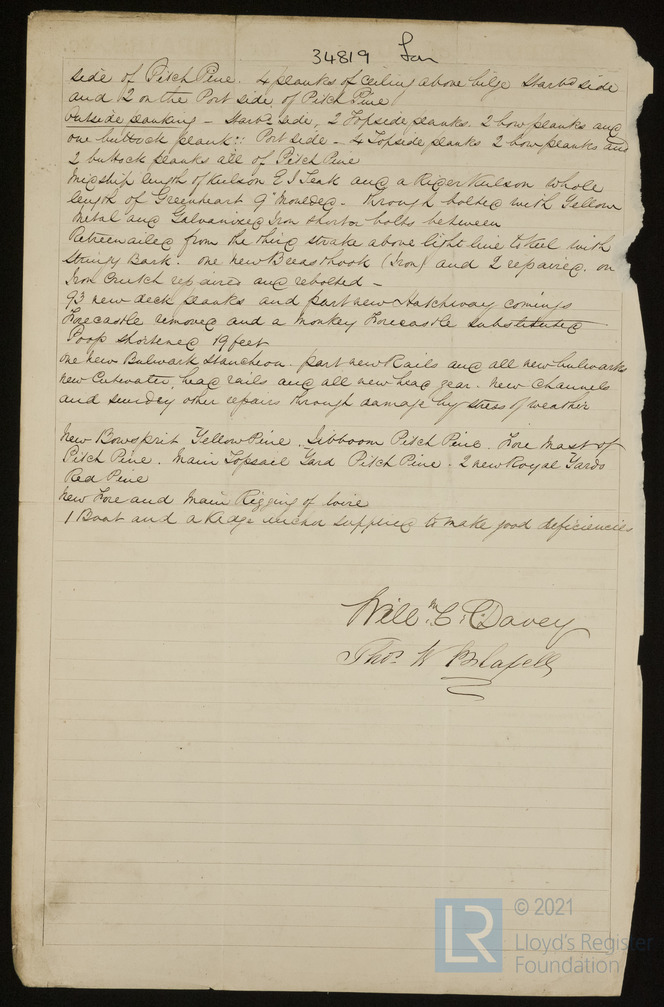 34819 Lon
side of Pitch Pine. 4 planks of ceiling above bilge Starbd side
and 2 on the Port side of Pitch Pine
Outside planking - Starbd side, 2 Topside planks. 2 bow planks and
one buttock plank:: Port side - 4 Topside planks 2 bow planks and
2 buttock planks all of Pitch Pine
Midship length of Kulson E I Teak and a Rider Kulson whole
length of Greenheart 9" Moulded - through bolted with Yellow
Metal and Galvanized Iron short bolts between
Retreenailed from the third strake above light line to keel with
Stringy Bark. one new Breasthook (Iron) and 2 repaired. on
Iron Crutch repaired and rebolted -
93 new deck planks and part new Hatchway comings
Forecastle removed and a Monkey Forecastle substituted
Poop shortened 19 feet
one new Bulwark Stancheon. part new Rails and all new bulwarks
new Cutwater, head rails and all new head gear. new Channels
and sundry other repairs through damage by stress of weather
New Bowsprit Yellow Pine. Jibboom Pitch Pine. Fore Mast of
Pitch Pine. Main Topsail Yard Pitch Pine. 2 new Royal Yards
Red Pine
New Fore and Main Rigging of wire
1 Boat and a Kedge anchor supplied to make good deficiencies
Willm C. C. Davey
Thos W
LR
© 2021
Lloyd's Register
Foundation